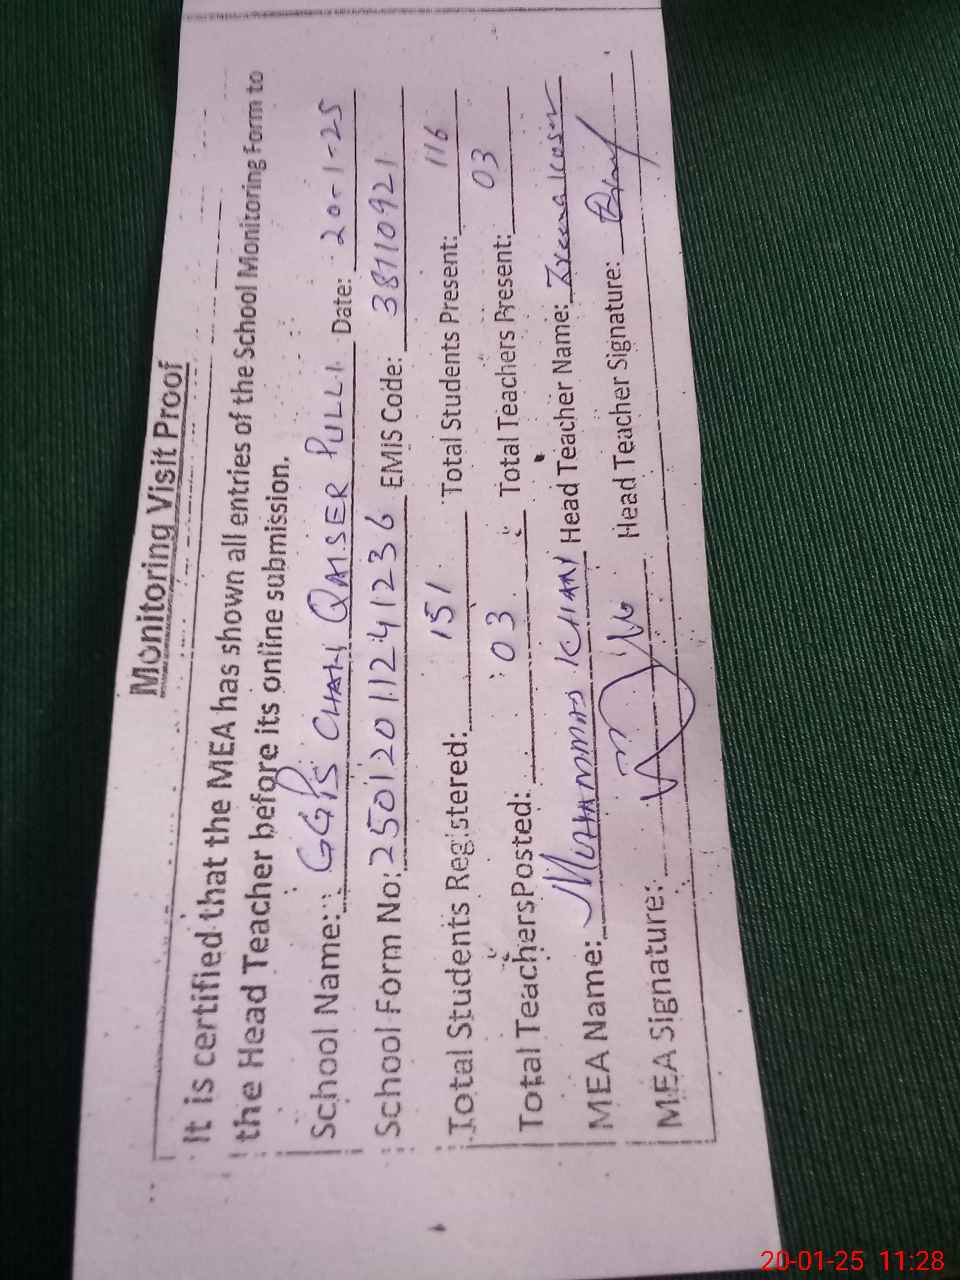 Monitoring Visit Proof
It is certified that the MEA has shown all entries of the School Monitoring Form to
the Head Teacher before its online submission.
School Name: GGPS CHAH QAISER PULLI Date: 20-1-25
School Form No: 25012011241236 EMIS Code: 38110921
Total Students Registered: 151 Total Students Present: 116
Total Teachers Posted: 03 Total Teachers Present: 03
MEA Name: MUHAMMAD KHAN Head Teacher Name:
MEA Signature: Head Teacher Signature:
20-01-25 11:28